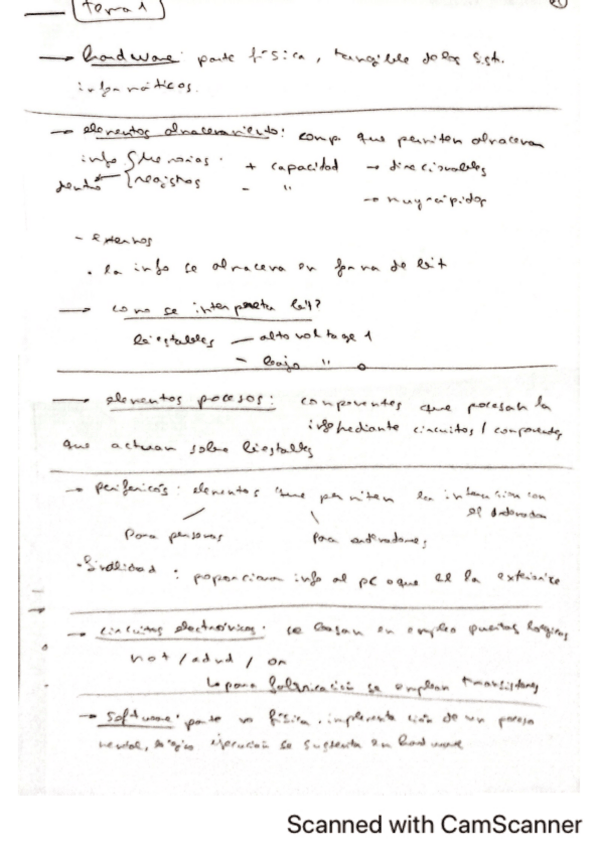 tema 1
→ hardware: parte física, tangible de los sist.
informáticos.
→ elementos almacenamiento: comp que permiten almacenar
info { Memorias · + capacidad → direcionables
dentro { registros - " → muy rápidos
- externos
· la info se almacena en forma de bit
→ como se interpreta bit?
biestables — alto voltage 1
- bajo " 0
→ elementos procesos: componentes que procesan la
info mediante circuitos / componentes
que actuan sobre biestables
→ periféricos: elementos que permiten la interacción con
el ordenador
Para personas para ordenadores
: proporcionan info al pc o que él la exteriorice
→ circuitos electrónicos: se basan en empleo puertas lógicas
not / and / or
↳ para fabricación se emplean transistores
→ Software: parte no física. implementación de un proceso
mental, lógico ejecución se sustenta en hardware
Scanned with CamScanner